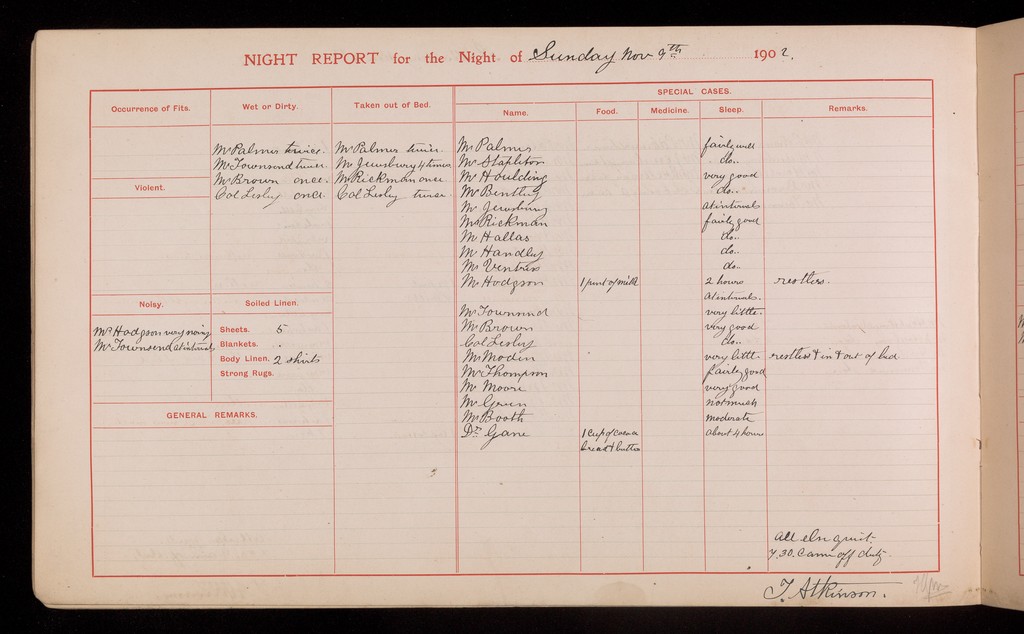 NIGHT REPORT for the Night of Sunday Nov 9th 1902.
Occurrence of Fits.
Wet or Dirty.
Taken out of Bed.
SPECIAL CASES.
Name.
Food.
Medicine.
Sleep.
Remarks.
Mr Palmer twice. Mr Palmer twice. Mr Palmer fairly well
Mr Townsend twice. Mr Jewsbury 4 times Mr Stapleton do..
Mr Brown once. Mr Rickman once Mr Houlding very good
Col Lesley once Col Lesley twice Mr Bentley do..
Violent.
Mr Jewsbury at intervals
Mr Rickman fairly good
Mr Hallas do..
Mr Handley do..
Mr Ventris do..
Mr Hodgson 1 pint of milk 2 hours restless.
at intervals.
Noisy.
Soiled Linen.
Mr Hodgson very noisy
Mr Townsend at intervals
Sheets. 5
Blankets. .
Body Linen. 2 shirts
Strong Rugs.
Mr Townsend very little.
Mr Brown very good
Col Lesley do..
Mr Modin very little. restless & in & out of bed
Mr Thompson fairly good
Mr Moore very good
Mr Green not much
Mr Booth moderate
Dr Gane 1 Cup of cocoa about 4 hours
bread & butter
GENERAL REMARKS.
All else quiet.
7.30. Came off duty.
T. Atkinson.